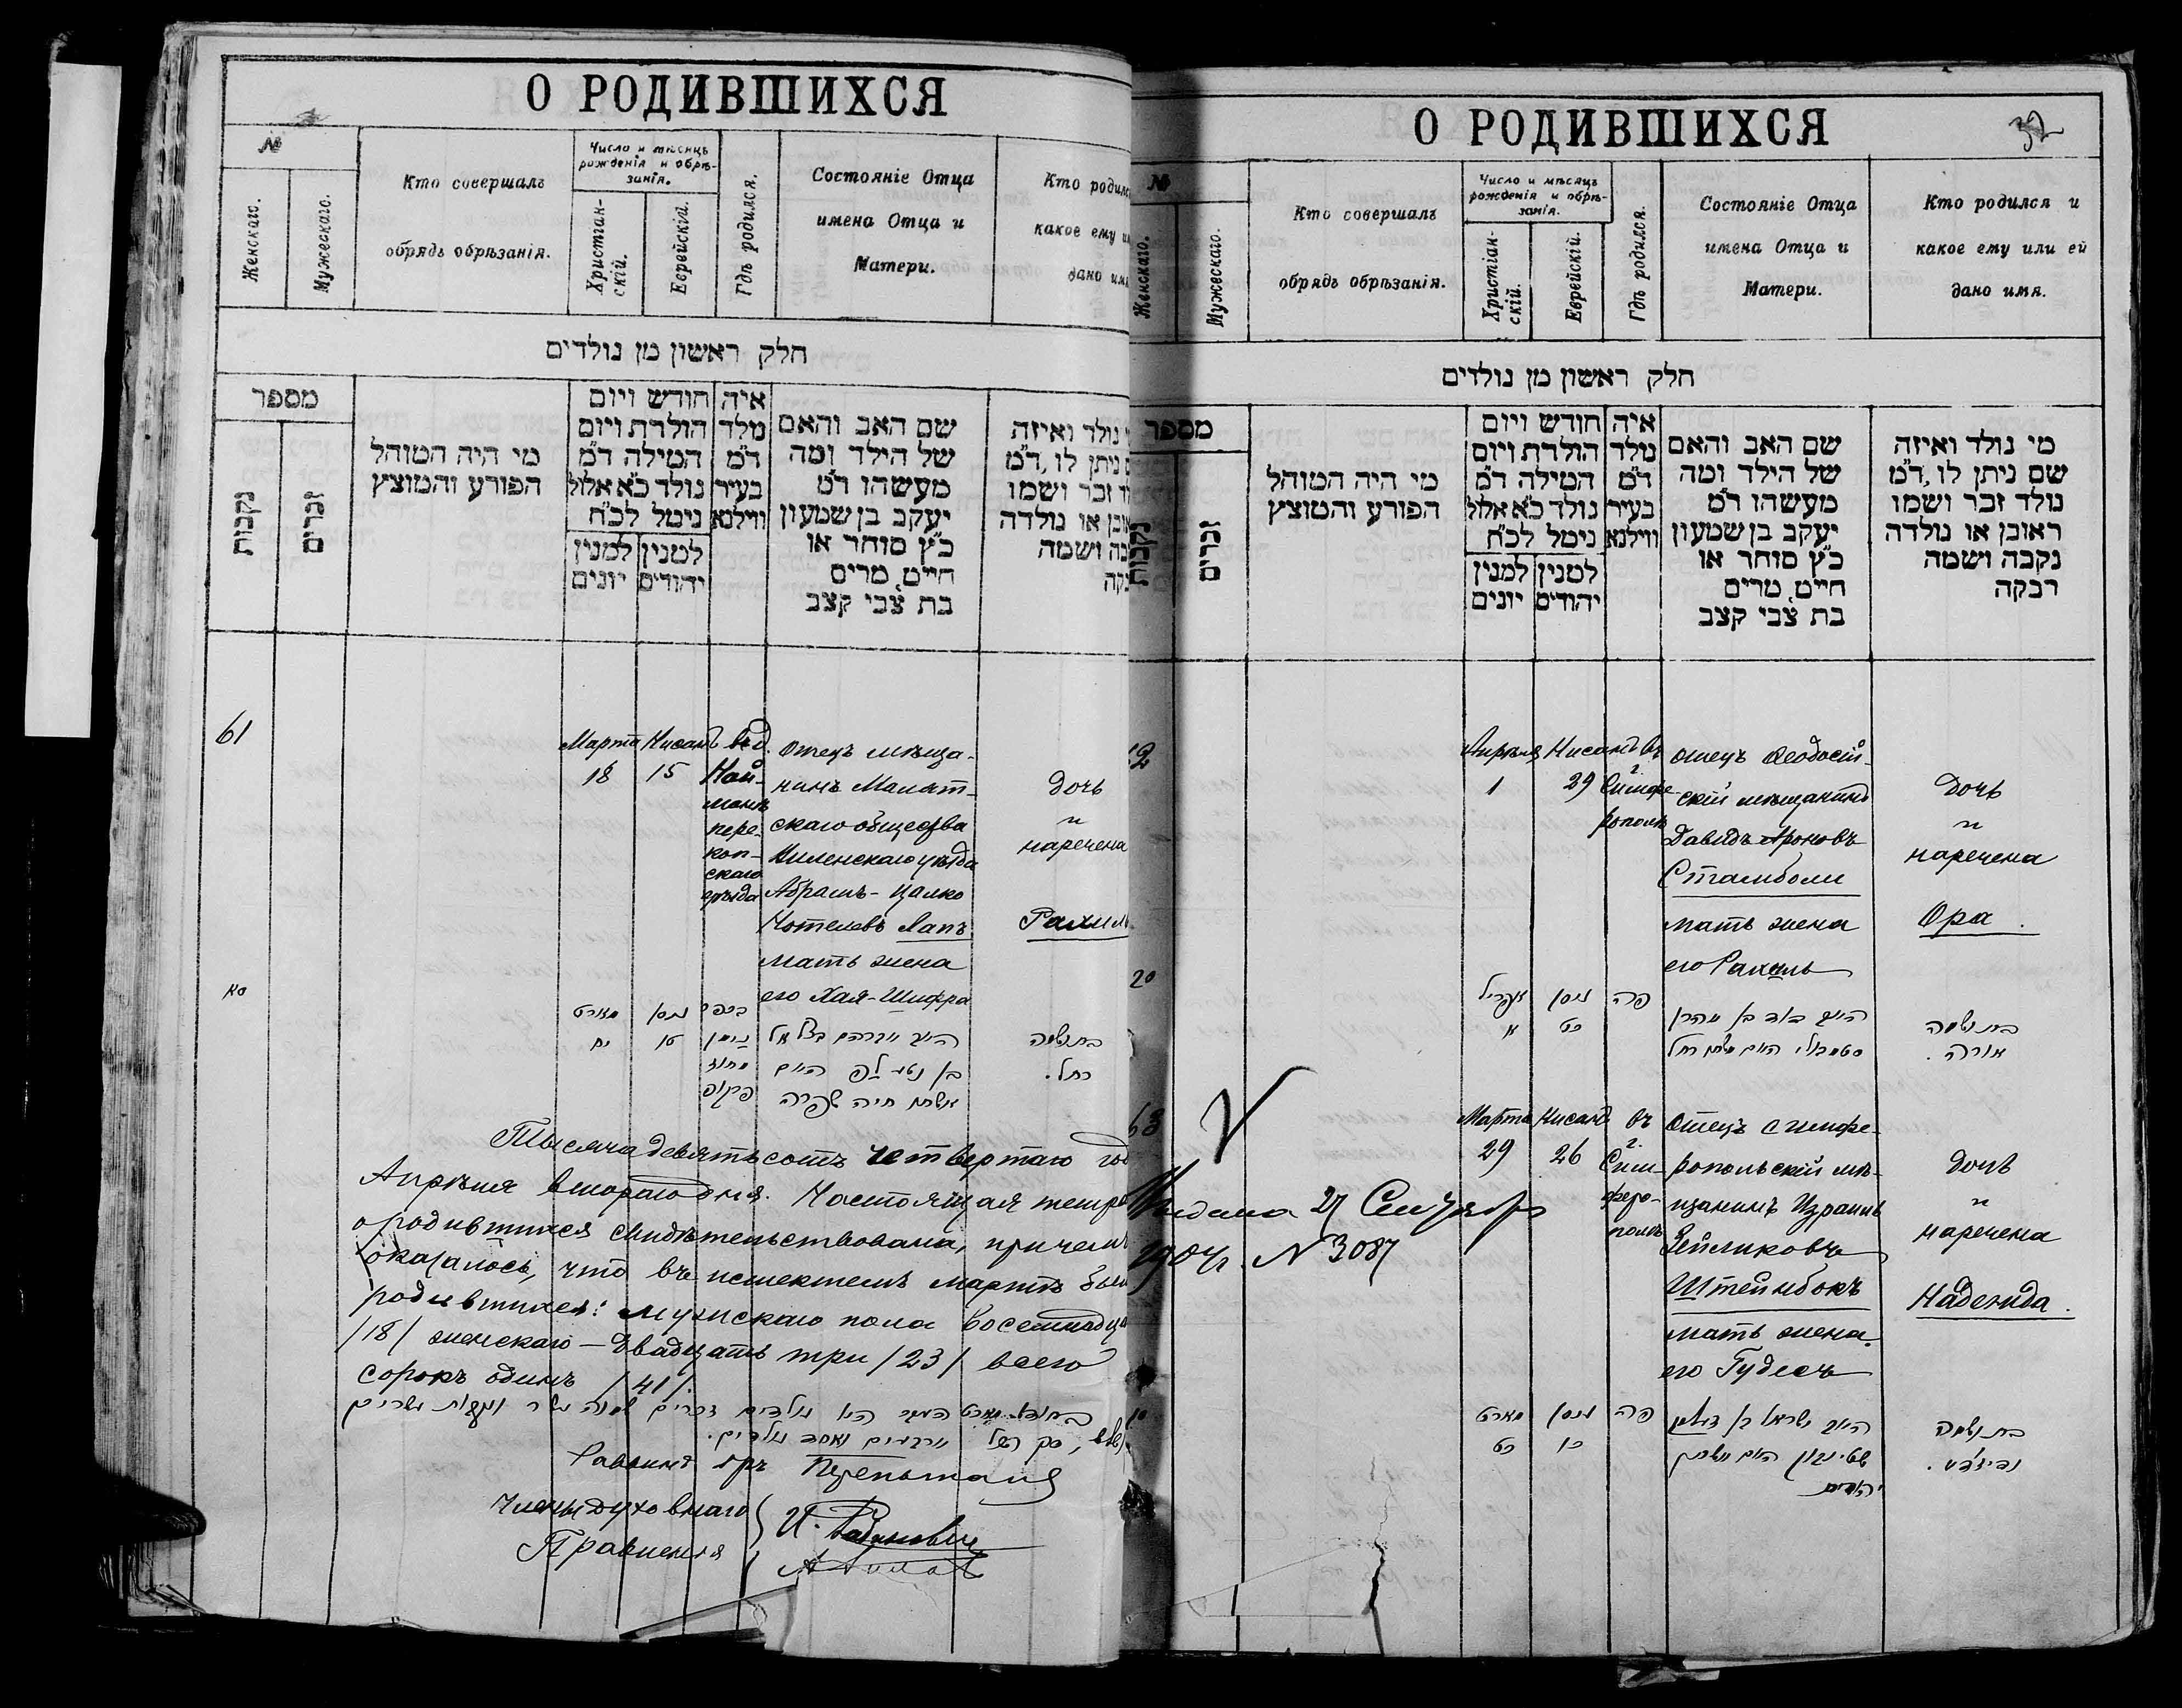 О РОДИВШИХСЯ
№
Женскаго.
Мужескаго.
Кто совершалъ
обрядъ обрѣзанія.
Число и мѣсяцъ
рожденія и обрѣ-
занія.
Христіан-
скій.
Еврейскій.
Гдѣ родился.
Состояніе Отца
имена Отца и
Матери.
Кто родилс
какое ему и
дано имя
חלק ראשון מן נולדים
מספר
נקבות
זכרים
מי היה המוהל
הפורע והמוצץ
חודש ויום
הולדת ויום
המילה ד״מ
נולד כ״א אלול
נימל לכ״ח
למנין יהודים
למנין יונים
איה
מלד
ד״מ
בעיר
ווילנא
שם האב והאם
של הילד ומה
מעשהו ד״מ
יעקב בן שמעון
כ״ץ סוחר או
חייט, מרים
בת צבי קצב
נולד ואיזה
ניתן לו, ד״מ
זכר ושמו
או נולדה
ושמה
61
Марта
18
Нисанъ
15
въ д.
Най-
манъ
пере-
коп-
скаго
уѣзда
Отецъ мѣща-
нинъ Малят-
скаго общества
Виленскаго уѣзда
Абрамъ-Цалко
Нотелевъ Лапъ
мать жена
его Хая-Шифра
Дочь
и
наречена
Рахиль
מארט
יח
ניסן
טו
האב אברהם בצלאל
בן נטע לפ האם
אשתו חיה שפרה
בת ושמה
רחל.
Тысяча девятьсотъ четвертаго год
Апрѣля втораго дня. Настоящая тетр
о родившихся свидѣтельствована, причемъ
оказалось, что въ истекшемъ мартѣ был
родившихся: мужскаго пола восемнадца
/18/ женскаго – двадцать три /23/ всего
сорокъ одинъ /41/.
Раввинъ
Члены духовнаго
Правленія
О РОДИВШИХСЯ
32
№
Женскаго.
Мужескаго.
Кто совершалъ
обрядъ обрѣзанія.
Число и мѣсяцъ
рожденія и обрѣ-
занія.
Христіан-
скій.
Еврейскій.
Гдѣ родился.
Состояніе Отца
имена Отца и
Матери.
Кто родился и
какое ему или ей
дано имя.
חלק ראשון מן נולדים
מספר
נקבות
זכרים
מי היה המוהל
הפורע והמוצץ
חודש ויום
הולדת ויום
המילה ד״מ
נולד כ״א אלול
נימל לכ״ח
למנין יהודים
למנין יונים
איה
נולד
ד״מ
בעיר
ווילנא
שם האב והאם
של הילד ומה
מעשהו ד״מ
יעקב בן שמעון
כ״ץ סוחר או
חייט, מרים
בת צבי קצב
מי נולד ואיזה
שם ניתן לו, ד״מ
נולד זכר ושמו
ראובן או נולדה
נקבה ושמה
רבקה
2
Апрѣля
1
Нисанъ
29
въ
г.
Симфе-
рополѣ
Отецъ Ѳеодосій-
скій мѣщанинъ
Давидъ Ароновъ
Стамболи
мать жена
его Рахиль
Дочь
и
наречена
Ора.
אפריל
א
ניסן
כט
פה
האב דוד בן אהרן
סטמבולי האם אשתו רחל
בת ושמה
אורה.
63
V
Выдана 27
1904 г. N 3087
Марта
29
Нисанъ
26
въ
г.
Сим-
феро-
полѣ
Отецъ симфе-
ропольскій мѣ-
щанинъ Израиль
Зейликовъ
Штейнбокъ
мать жена
его Гудесъ
Дочь
и
наречена
Надежда.
מארט
כט
ניסן
כו
פה
בת ושמה